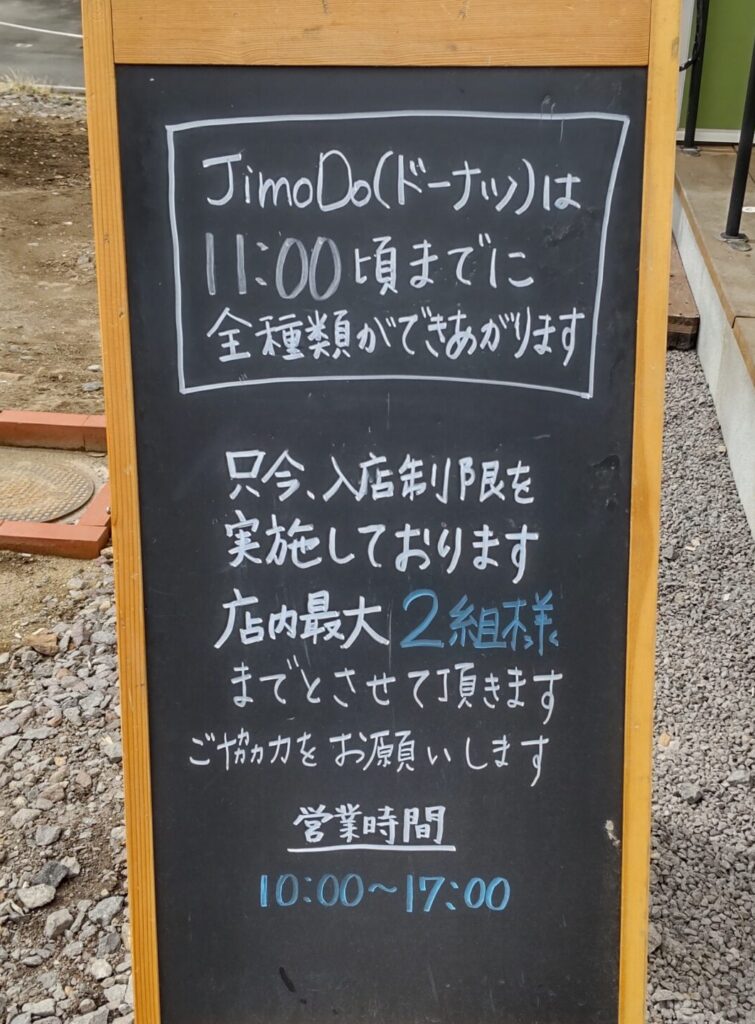 JimoDo(ドーナツ)は
11:00頃までに
全種類ができあがります
只今、入店制限を
実施しております
店内最大 2組様
までとさせて頂きます
ご協力をお願いします
営業時間
10:00~17:00